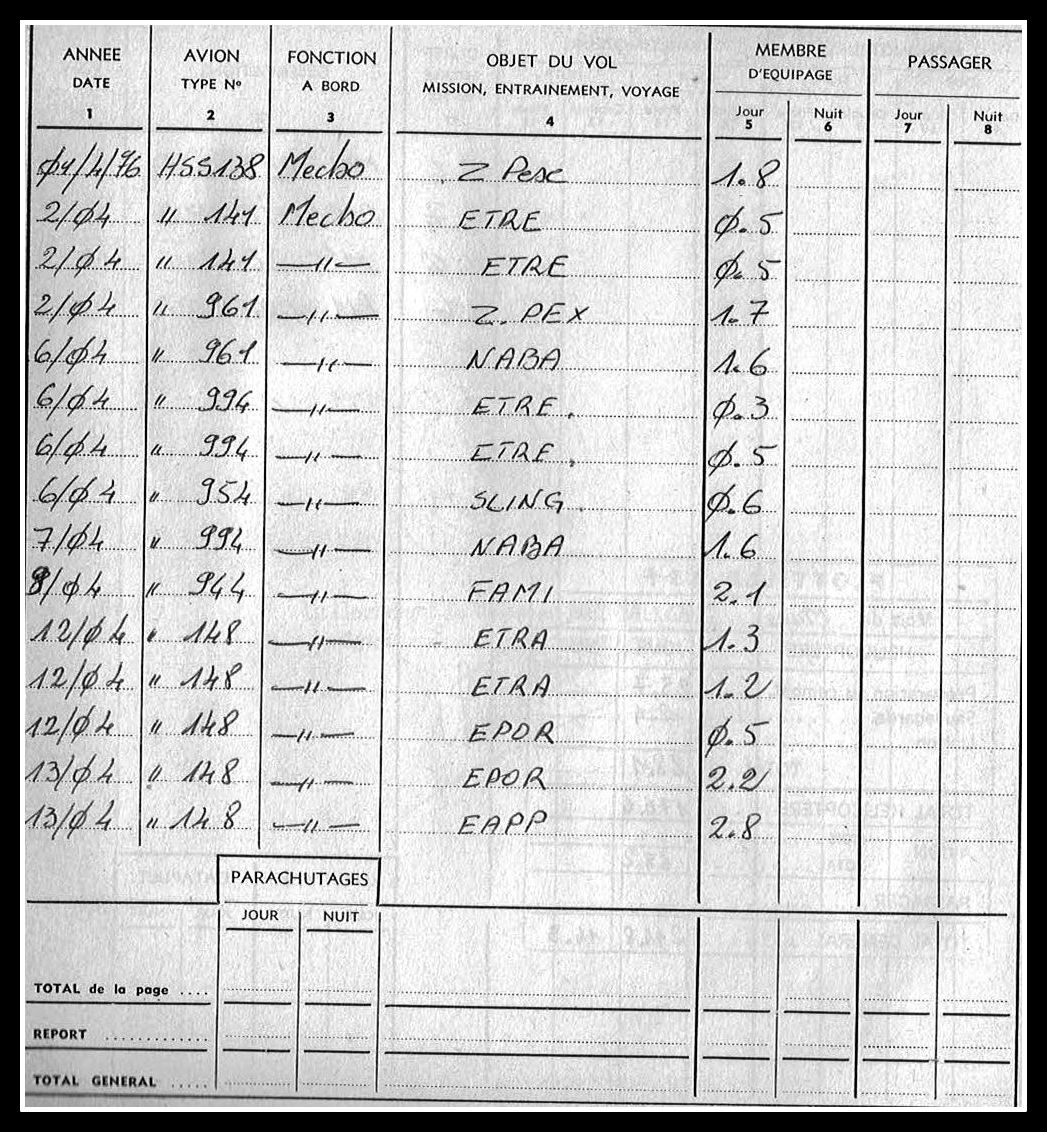 ANNEE DATE 1 AVION TYPE No 2 FONCTION A BORD 3 OBJET DU VOL MISSION, ENTRAINEMENT, VOYAGE 4 MEMBRE D'EQUIPAGE Jour 5 Nuit 6 PASSAGER Jour 7 Nuit 8
01/4/76 HSS138 Mecbo Z Pesc 1.8
2/04 " 141 Mecbo ETRE 0.5
2/04 " 141 —"— ETRE 0.5
2/04 " 961 —"— Z. PEX 1.7
6/04 " 961 —"— NABA 1.6
6/04 " 994 —"— ETRE. 0.3
6/04 " 994 —"— ETRE. 0.5
6/04 " 954 —"— SLING. 0.6
7/04 " 994 —"— NABA 1.6
8/04 " 944 —"— FAMI 2.1
12/04 " 148 —"— ETRA 1.3
12/04 " 148 —"— ETRA 1.2
12/04 " 148 —"— EPOR 0.5
13/04 " 148 —"— EPOR 2.2
13/04 " 148 —"— EAPP 2.8
PARACHUTAGES
JOUR NUIT
TOTAL de la page ....
REPORT .............
TOTAL GENERAL .....